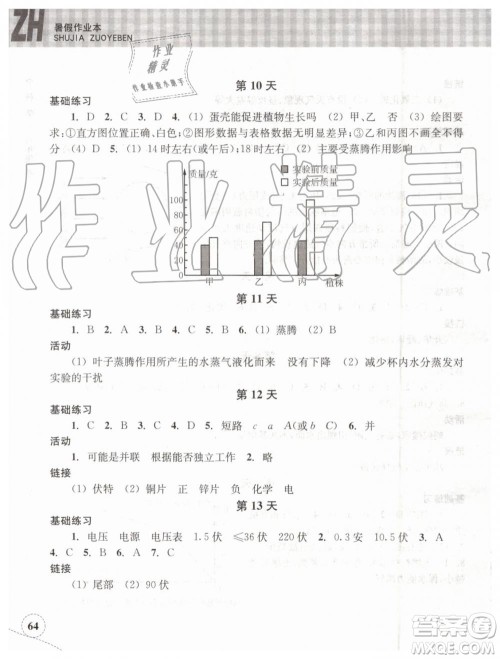 ZH 暑假作业本
SHUJIA ZUOYEBEN
作业
精灵
第 10 天
基础练习
1. D 2. C 3. D 4. (1) 蛋壳能促进植物生长吗 (2) 甲、乙 否 (3) 绘图要
求:①直方图位置正确、白色;②图形数据与表格数据无明显差异;③乙和丙图一个画不全不得
分 (4) D 5. (1) 14时左右(或午后);18时左右 (2) 主要受蒸腾作用影响
质量/克
实验前质量
实验后质量
100
80
60
40
20
0
甲 乙 丙 植株
作业精灵
第 11 天
基础练习
1. B 2. A 3. C 4. D 5. B 6. (1) 蒸腾 (2) B
活动
(1) 叶子蒸腾作用所产生的水蒸气液化而来 没有出现 (2) 减少杯内水分蒸发对
实验的干扰
第 12 天
基础练习
1. C 2. B 3. C 4. D 5. 短路 c a A(或b) 6. 并
活动
1. 可能是并联 根据能否独立工作 2. 略
链接
(1) 伏特 (2) 铜片 正 锌片 负 化学 电
第 13 天
基础练习
1. 电压 电源 电压表 1.5伏 ≤36伏 220伏 2. 0.3安 10.5伏 3. A
4. C 5. B 6. A 7. C 8. B 9. A
链接
(1) 尾部 (2) 90伏
64